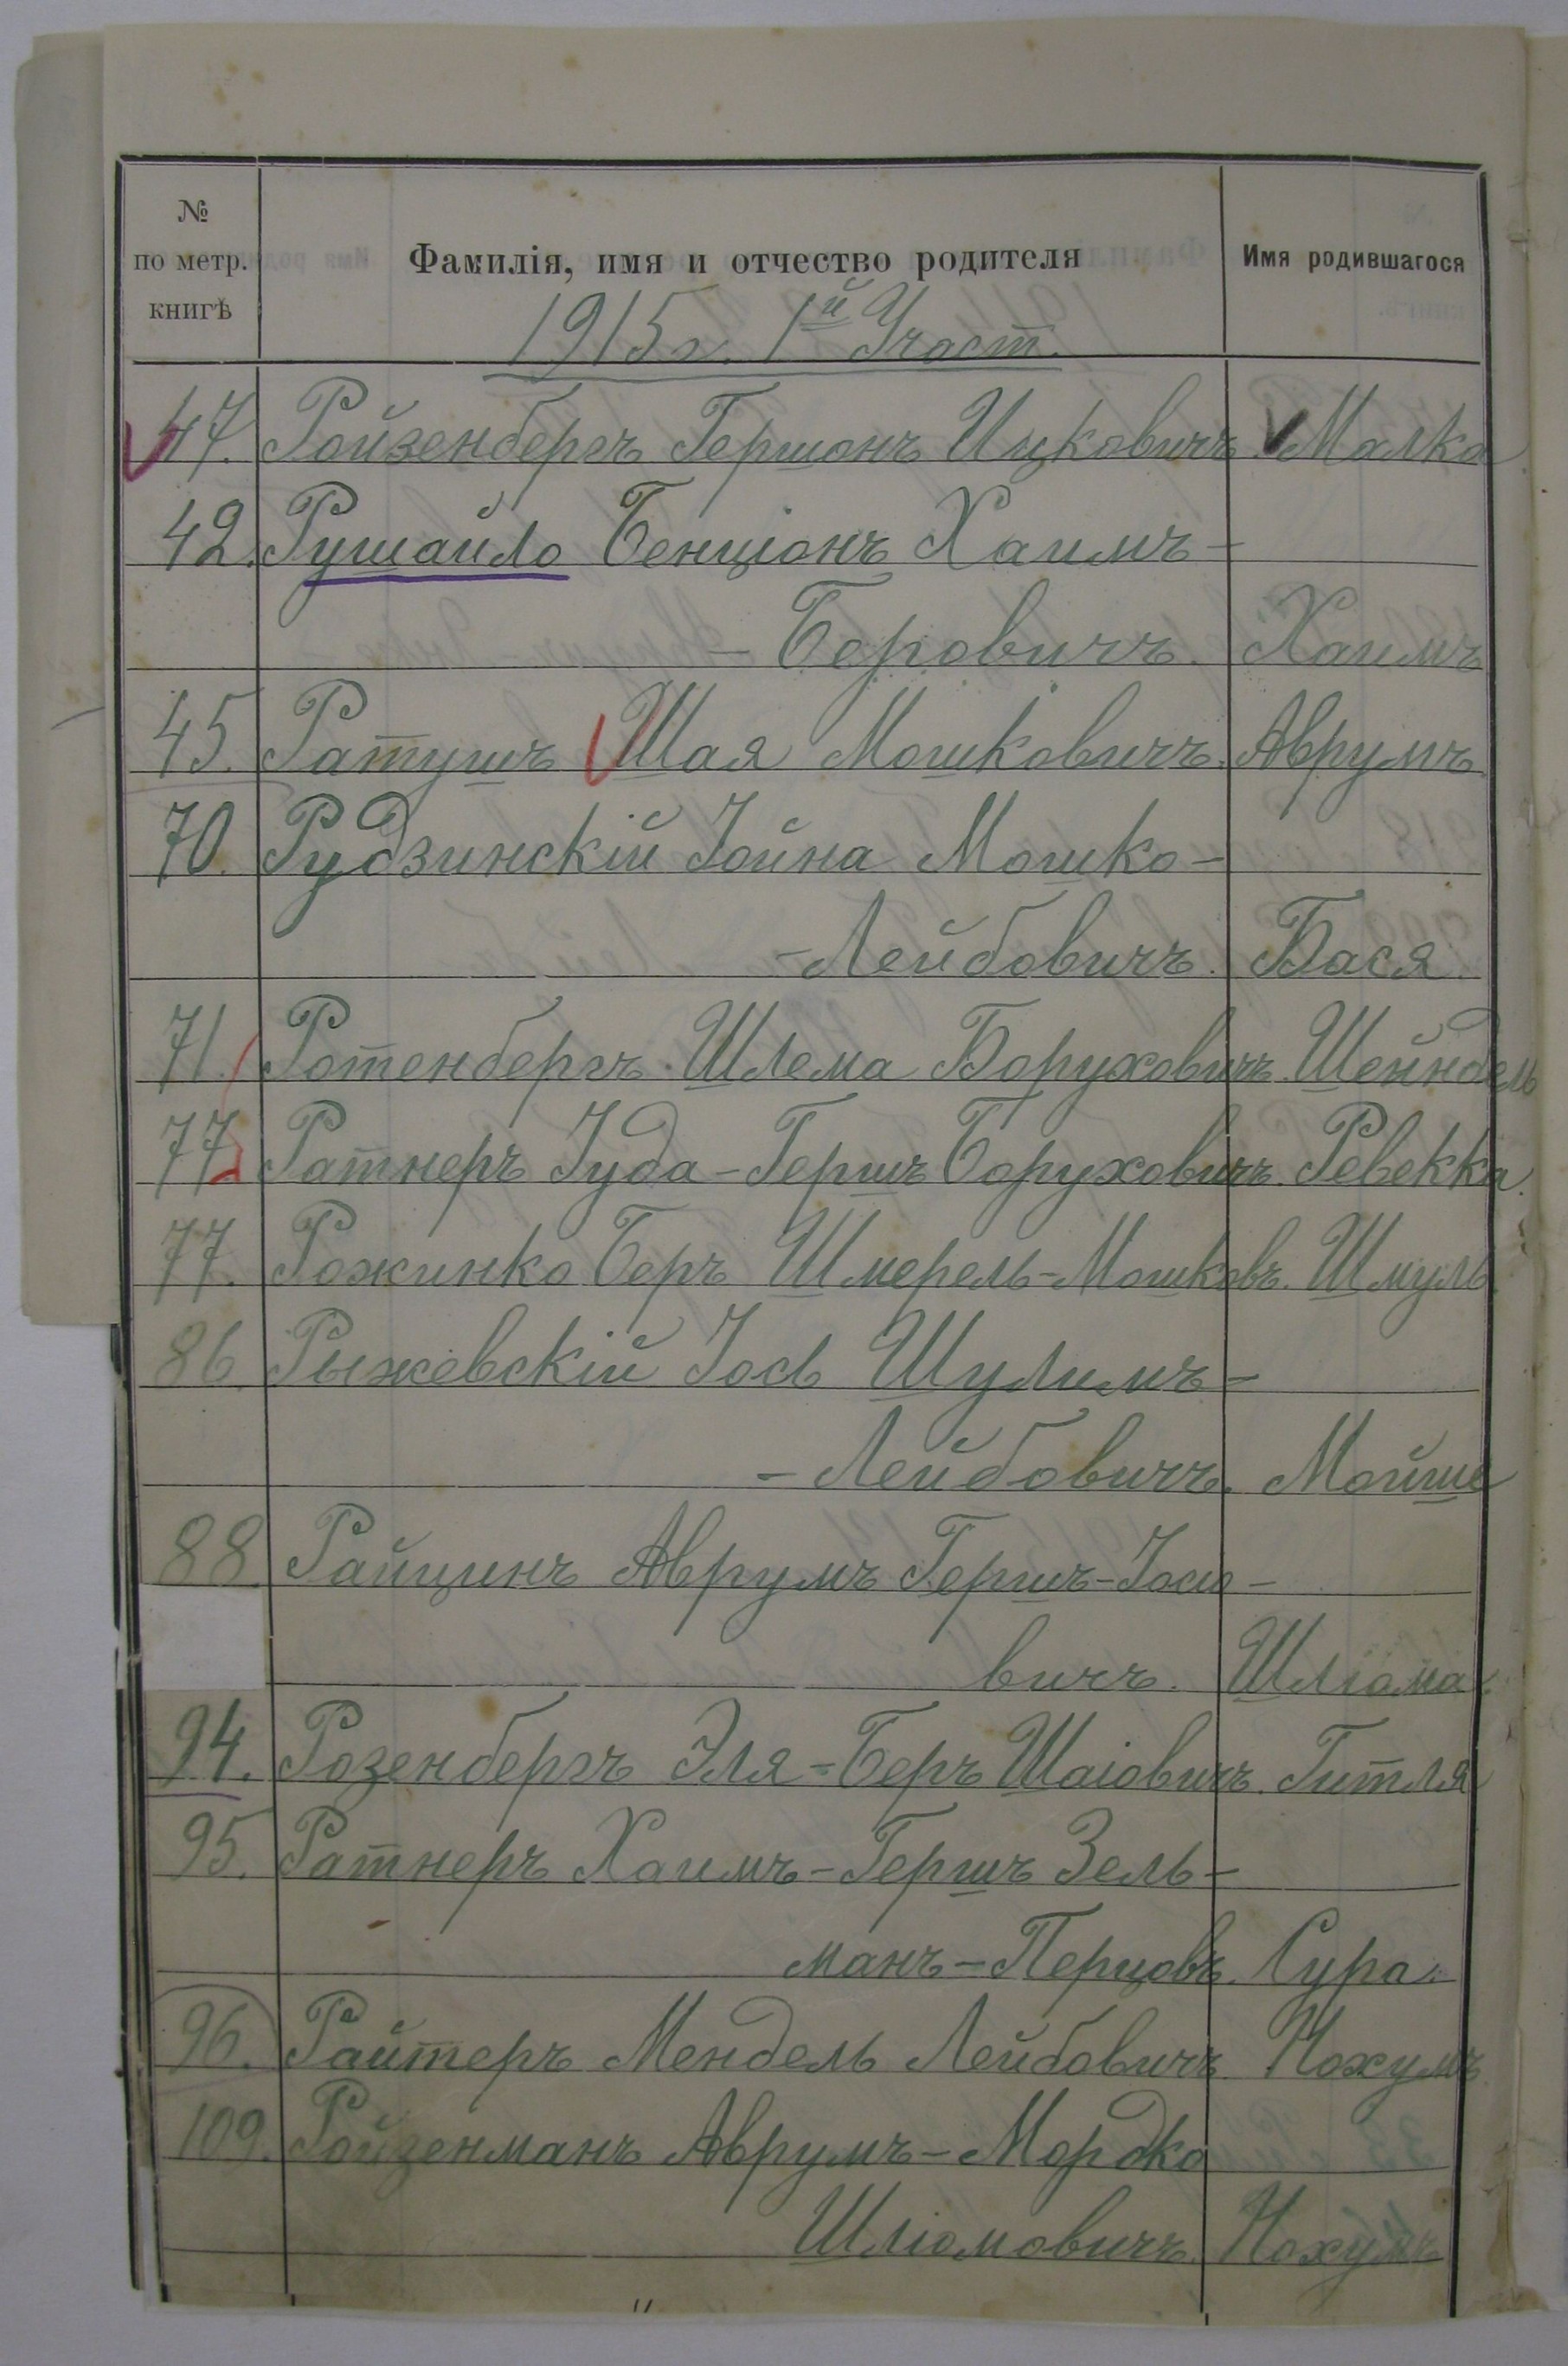 № по метр. книгѣ Фамилія, имя и отчество родителя Имя родившагося
1915 г. 1й Участ.
47. Ройзенбергъ Гершонъ Ицковичъ Малка
42. Рушайло Бенціонъ Хаимъ-
- Беровичъ. Хаимъ
45. Ратушъ Шая Мошковичъ. Аврумъ
70. Рудзинскій Іойна Мошко-
- Лейбовичъ. Бася.
71. Ротенбергъ Шлема Боруховичъ. Шейндель
77. Ратнеръ Іуда-Гершъ Боруховичъ. Ревекка.
77. Рожинко Беръ Шмерель-Мошковъ. Шмуль
86. Рыжевскій Іось Шулимъ-
- Лейбовичъ. Мойше
88. Райцинъ Аврумъ Гершъ-Іосіо-
вичъ. Шліома.
94. Розенбергъ Эля-Беръ Шаіовичъ. Гитля
95. Ратнеръ Хаимъ-Гершъ Зель-
манъ-Перцовъ. Сура.
96. Райтеръ Мендель Лейбовичъ. Нохумъ
109. Ройзенманъ Аврумъ-Мордко
Шліомовичъ. Нохумъ